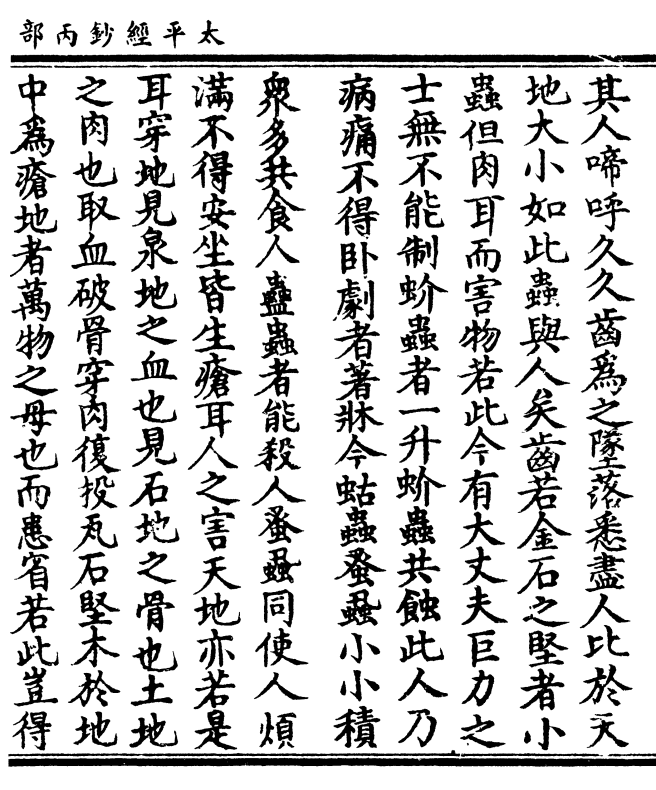 太平經鈔丙部
其人啼呼久久齒為之墜落悉盡人比於天
地大小如此蟲與人矣齒若金石之堅者小
蟲但肉耳而害物若此今有大丈夫巨力之
士無不能制蚧蟲者一升蚧蟲共蝕此人乃
病痛不得臥劇者著牀今蛄蟲蚤蝨小小積
衆多共食人蠱蟲者能殺人蚤蝨同使人煩
滿不得安坐皆生瘡耳人之害天地亦若是
耳穿地見泉地之血也見石地之骨也土地
之肉也取血破骨穿肉復投瓦石堅木於地
中為瘡地者萬物之母也而患省若此豈得